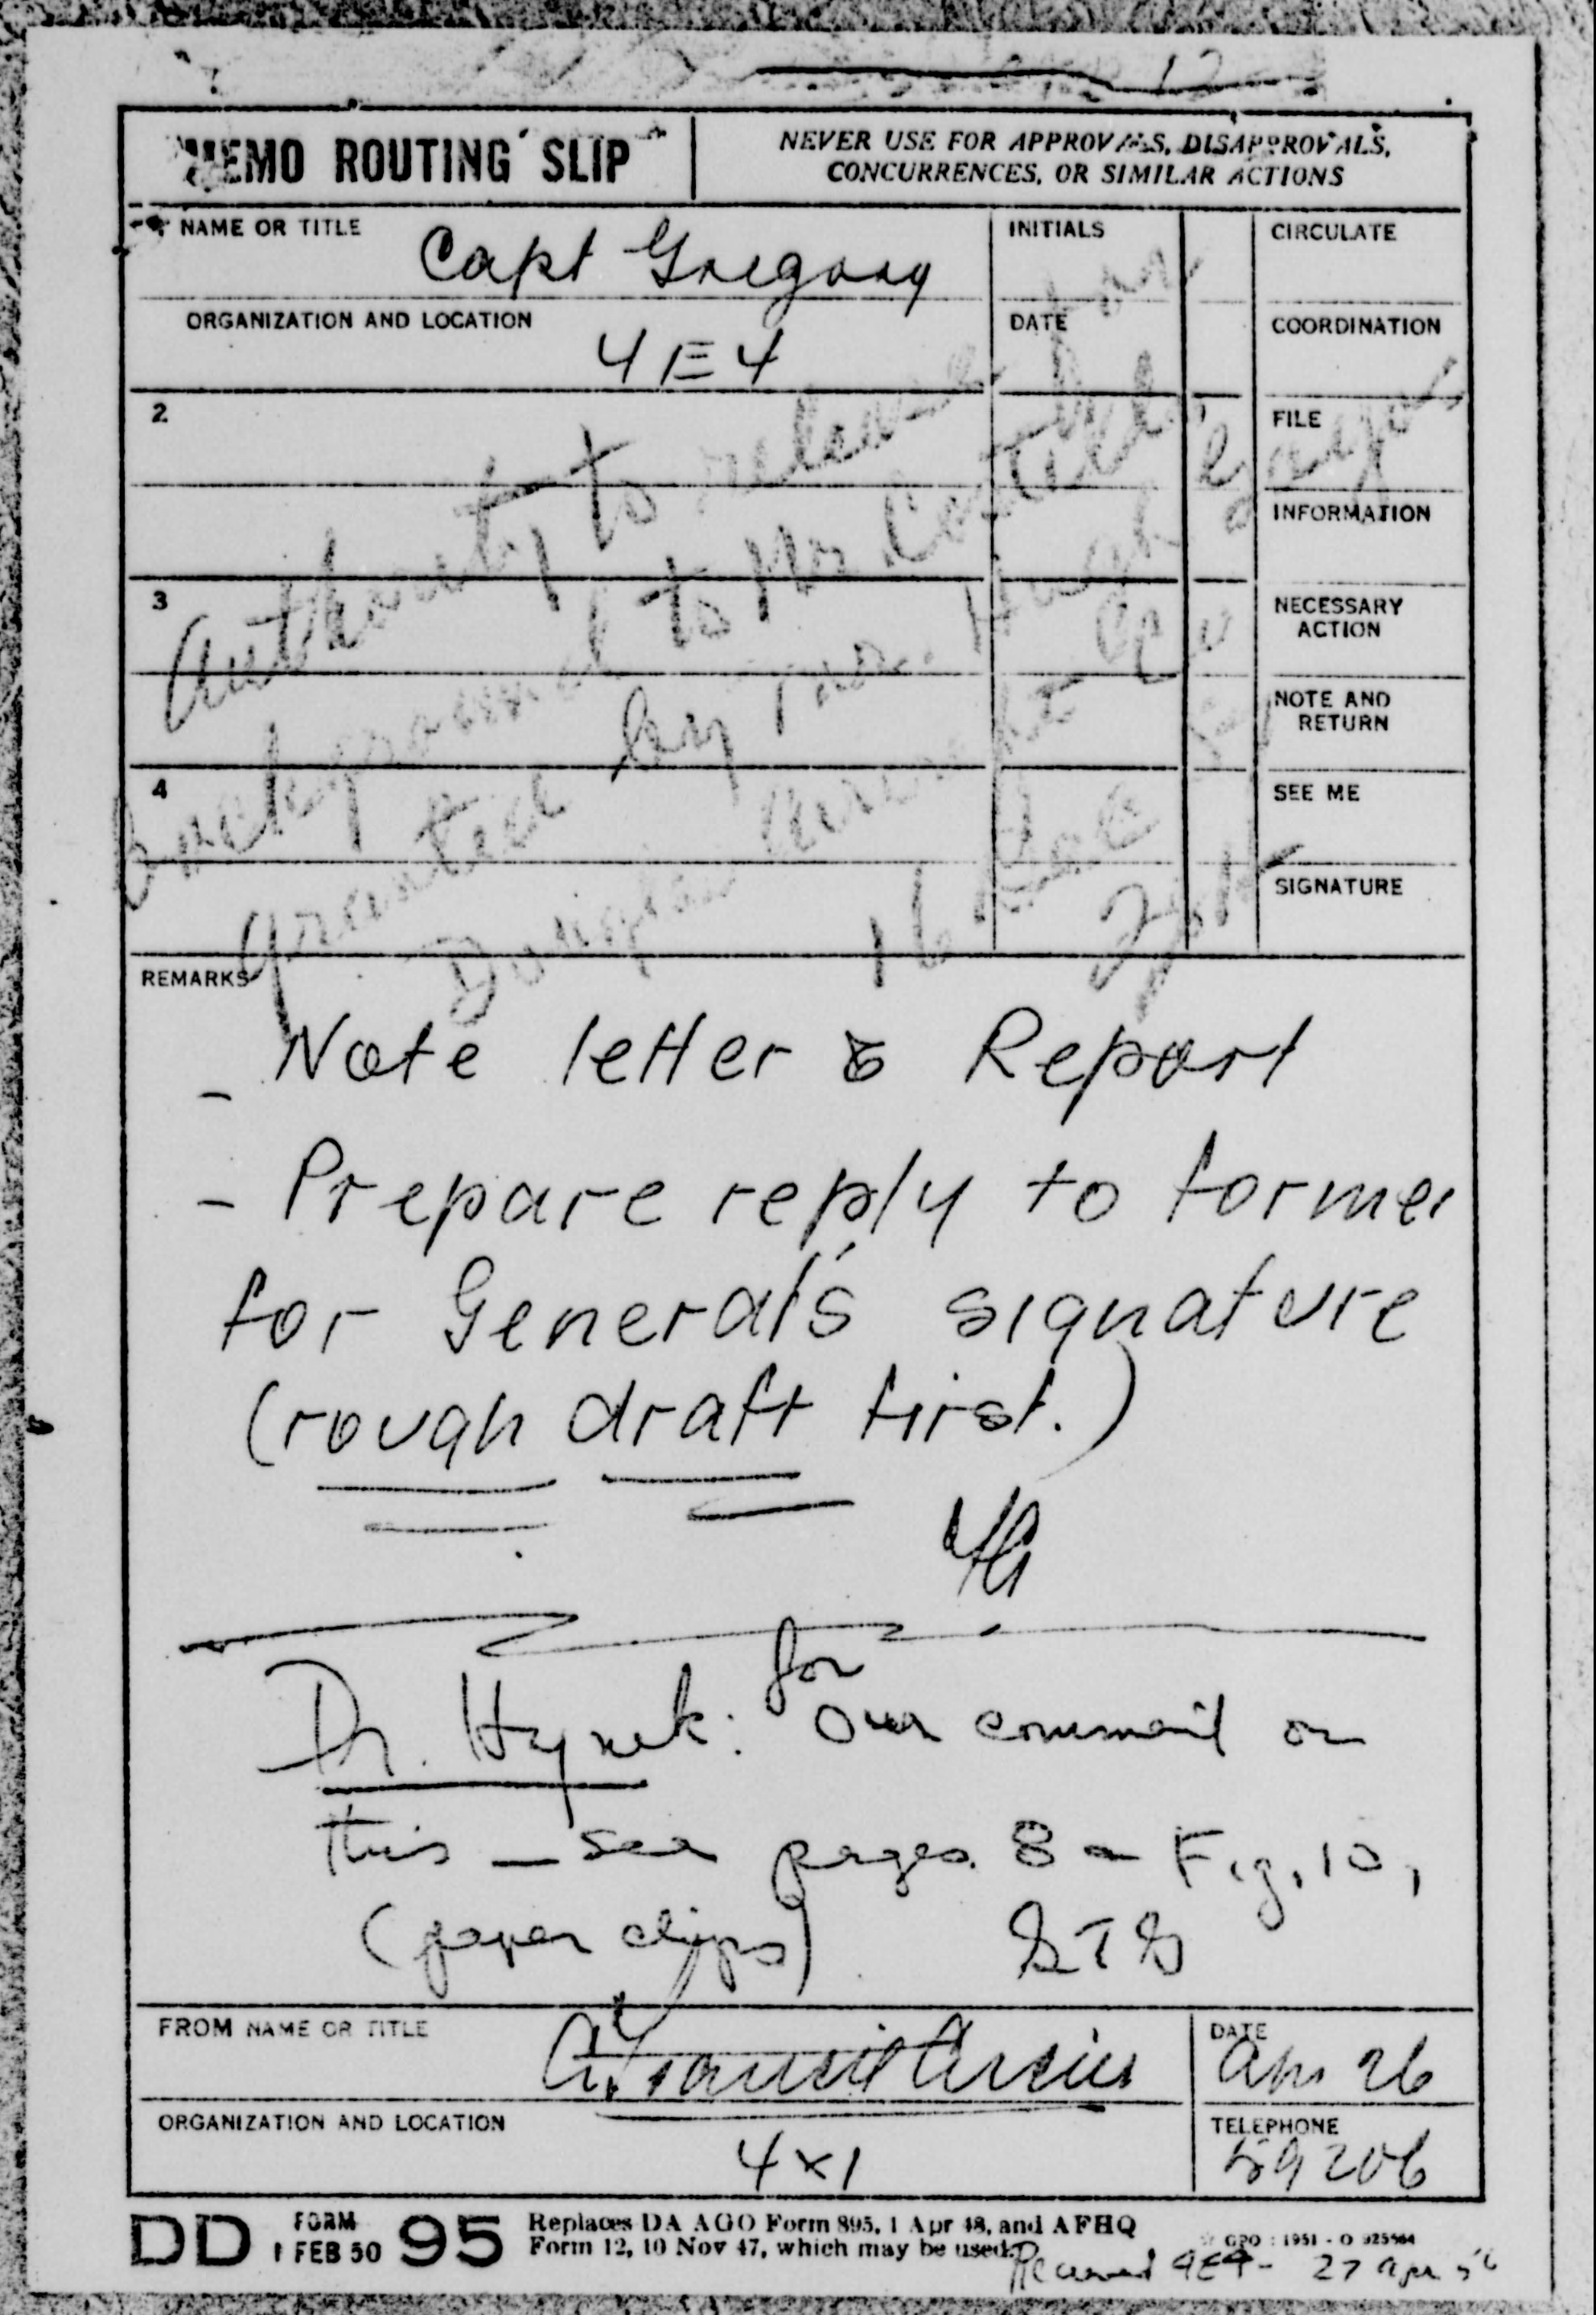 12
MEMO ROUTING SLIP
NEVER USE FOR APPROVALS, DISAPPROVALS,
CONCURRENCES, OR SIMILAR ACTIONS
NAME OR TITLE
Capt Gregory
INITIALS
CIRCULATE
ORGANIZATION AND LOCATION
4E4
DATE
COORDINATION
2
FILE
INFORMATION
3
NECESSARY
ACTION
NOTE AND
RETURN
4
SEE ME
SIGNATURE
Authority to release
background to Mr
granted by
Douglas Aircraft
16
REMARKS
- Note letter & Report
- Prepare reply to former
for General's signature
(rough draft first.)
Dr. Hynek: for our comment on
this — see pages 8 - Fig. 10,
(paper clips) GTG
FROM NAME OR TITLE
DATE
Apr 26
ORGANIZATION AND LOCATION
4x1
TELEPHONE
59206
DD FORM 1 FEB 50 95
Replaces DA AGO Form 895, 1 Apr 48, and AFHQ
Form 12, 10 Nov 47, which may be used.
GPO : 1951 - O 925564
Received 4E4 - 27 Apr 56